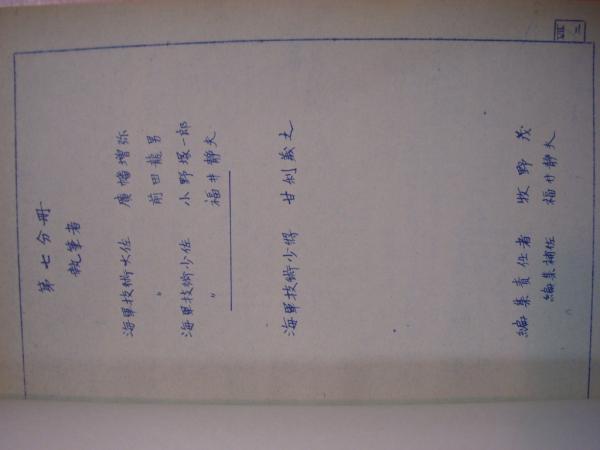 第七分冊
執筆者
海軍技術大佐 廣幡増弥
〃 前田龍男
海軍技術少佐 小野塚一郎
〃 福井静夫
海軍技術少将 甘利義之
編集責任者 牧野茂
編集補佐 福井静夫